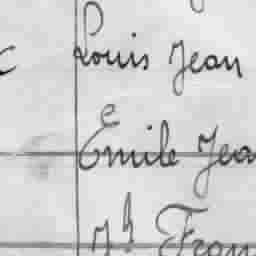 Louis Jean
e
Emile Jea
Jh Fran